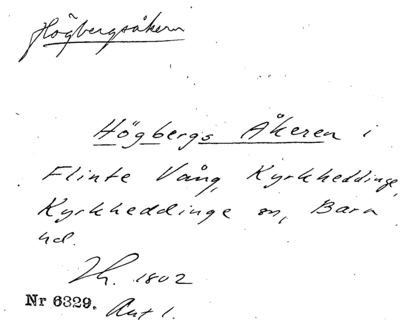 Högbergsåkern
Högbergs Åkeren i
Flinte Vång, Kyrkheddinge,
Kyrkheddinge sn, Bara
hd.
1802
Nr 6329. Akt 1.